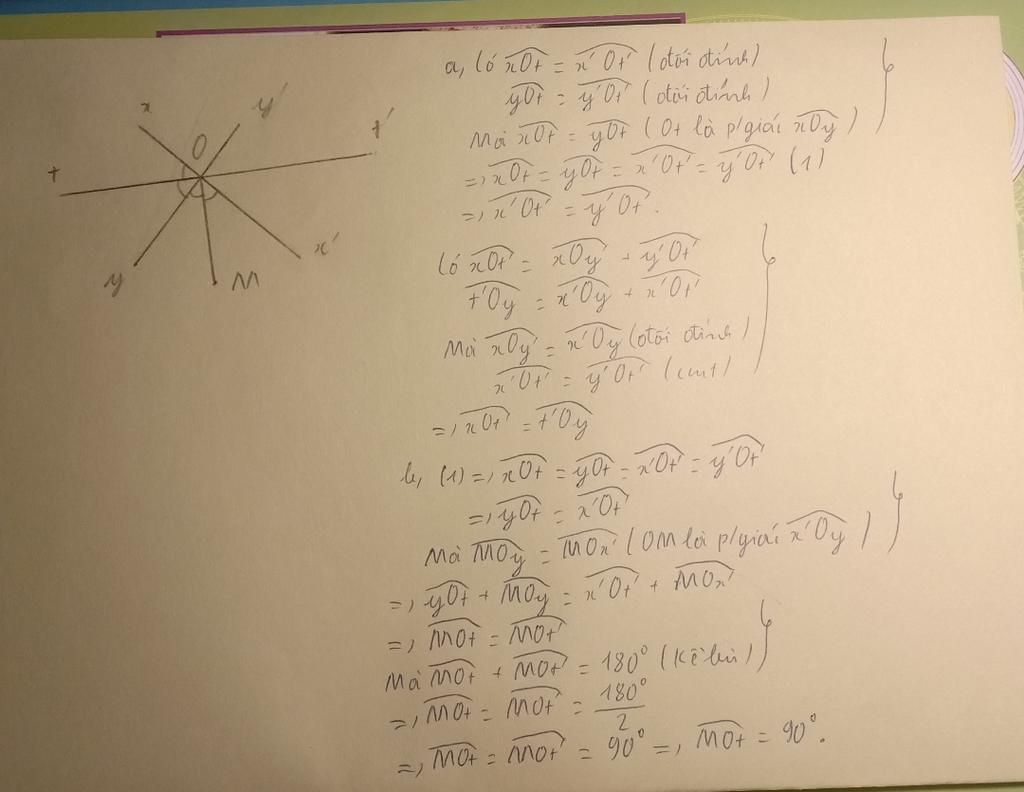 x
y'
O
t'
t
y
M
x'
a, Có \widehat{xOt} = \widehat{x'Ot'} (đối đỉnh)
\widehat{yOt} = \widehat{y'Ot'} (đối đỉnh)
Mà \widehat{xOt} = \widehat{yOt} (Ot là p/giác \widehat{xOy})
=> \widehat{xOt} = \widehat{yOt} = \widehat{x'Ot'} = \widehat{y'Ot'} (1)
=> \widehat{x'Ot'} = \widehat{y'Ot'}.
Có \widehat{xOt'} = \widehat{xOy'} + \widehat{y'Ot'}
\widehat{t'Oy} = \widehat{x'Oy} + \widehat{x'Ot'}
Mà \widehat{xOy'} = \widehat{x'Oy} (đối đỉnh)
\widehat{x'Ot'} = \widehat{y'Ot'} (cmt)
=> \widehat{xOt'} = \widehat{t'Oy}
b, (1) => \widehat{xOt} = \widehat{yOt} = \widehat{x'Ot'} = \widehat{y'Ot'}
=> \widehat{yOt} = \widehat{x'Ot'}
Mà \widehat{MOy} = \widehat{MOx'} (OM là p/giác \widehat{x'Oy})
=> \widehat{yOt} + \widehat{MOy} = \widehat{x'Ot'} + \widehat{MOx'}
=> \widehat{MOt} = \widehat{MOt'}
Mà \widehat{MOt} + \widehat{MOt'} = 180° (Kề bù)
=> \widehat{MOt} = \widehat{MOt'} = \frac{180°}{2}
=> \widehat{MOt} = \widehat{MOt'} = 90° => \widehat{MOt} = 90°.